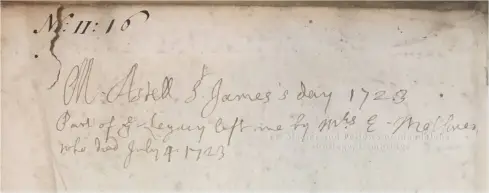 N: 11: 16
M. Astell St James's day 1723
Part of ye Legacy left me by Mrs E
who died July 9. 1723